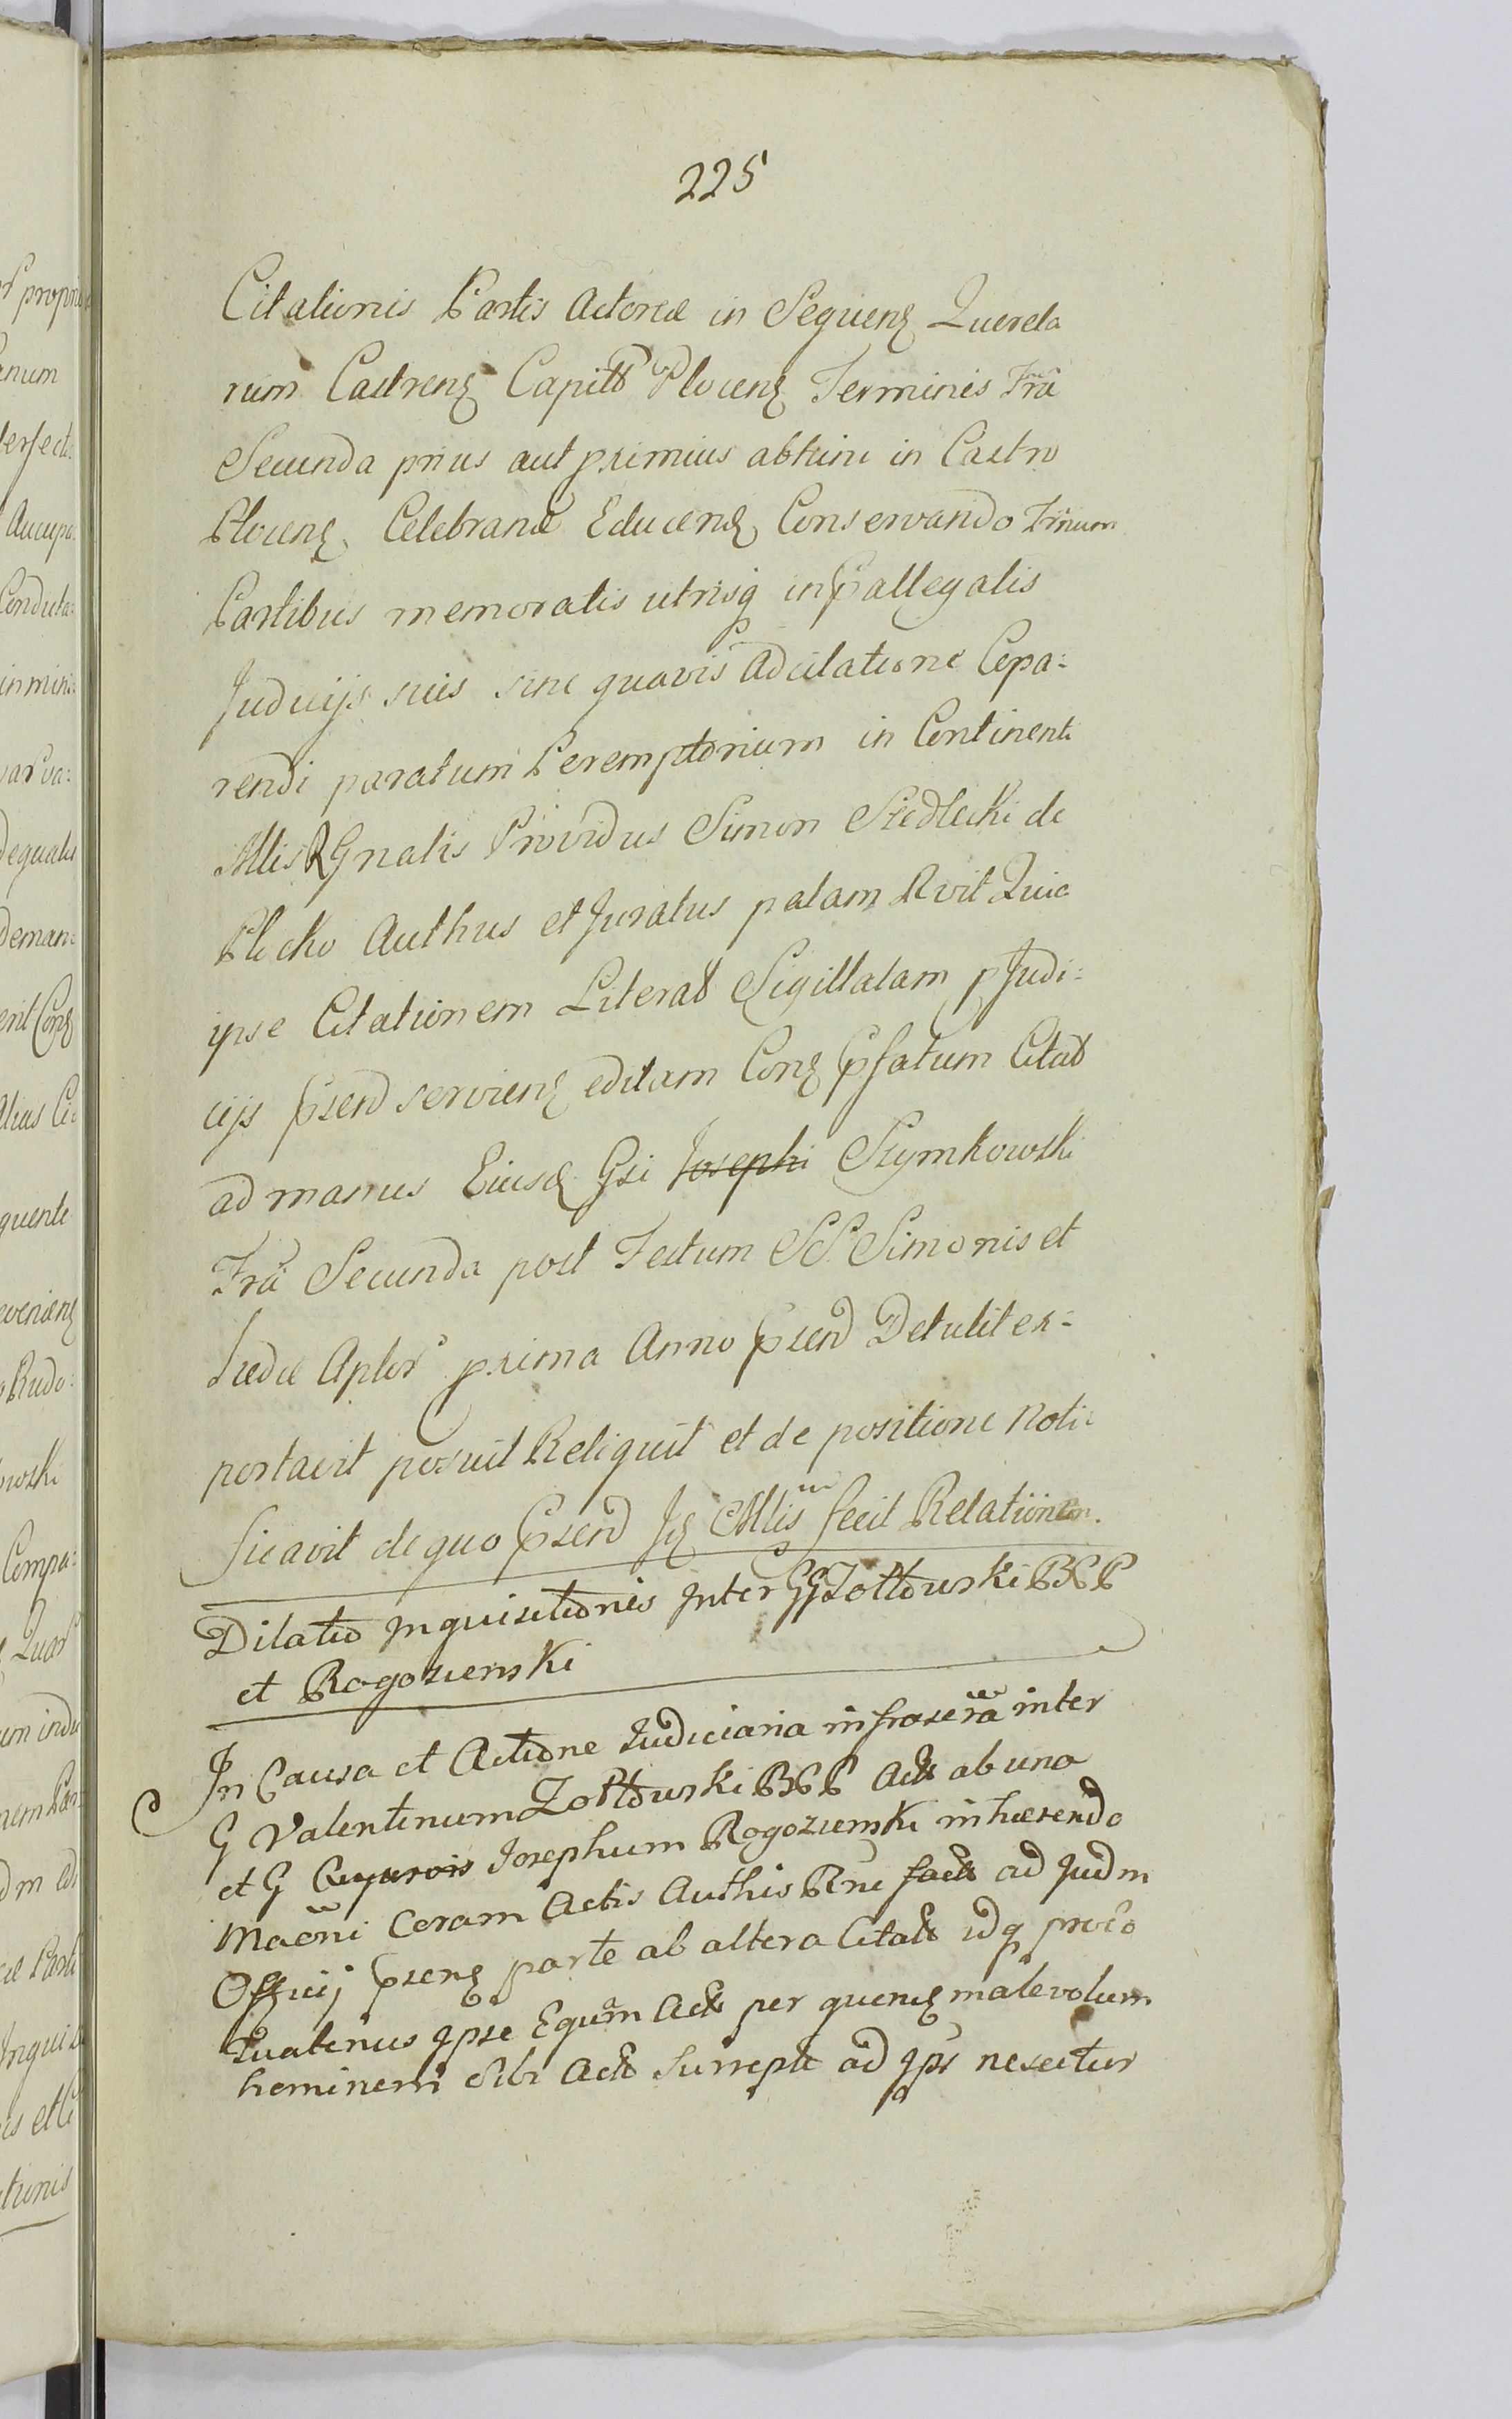 225
Citationis Partis Actoreæ in Sequenȝ Querela
rum Castrenȝ Capitt Plocenȝ Terminis Fra
Secunda prius aut proximius abhinc in Castro
Plocenȝ Celebrand Educend Conservando Trnum
Partibus memoratis utrisq in pallegalis
Judicijs suis sine quavis adcitatione Cepa:
rendi paratum Peremptorium in Continenti
Mlis R Gnalis Providus Simon Siedlecki de
Plocko Authus et Juratus palam Rvit Quia
ipse Citationem Literat Sigillatam p Judi:
cijs psend servienȝ editam Conȝ psatum Citat
ad manus Eiusd Gsi Josephi Szymkowski
Fra Secunda post Festum SS. Simonis et
Judæ Aplor proxima Anno psend Detulit ex:
portavit posuit Reliquit et de positione noti:
ficavit de quo psend Jd Mlis fecit Relationem.
Dilatio Inquisitionis Inter GG Zołtowski BCP
et Rogozienski
In Causa et Actione Judiciaria infrascra inter
G Valentinum Zołtowski BCP Act ab una
et G Josephum Rogozienski inhærendo
Maeoni Coram Actis Authis Rni fact ad Judm
Officij psenȝ parte ab altera Citatt idq proco
Quatenus Ipse Equm Act per quend malevolum
heminem sibi Act surrept ad ips nescitur